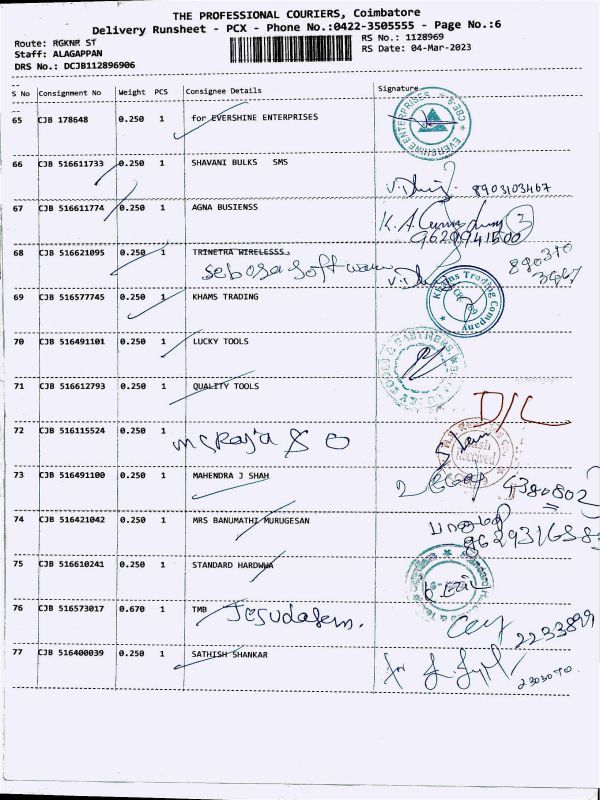 THE PROFESSIONAL COURIERS, Coimbatore
Delivery Runsheet - PCX - Phone No.:0422-3505555 - Page No.:6
Route: RGKNR ST
RS No.: 1128969
Staff: ALAGAPPAN
RS Date: 04-Mar-2023
DRS No.: DCJB112896906
S No Consignment No Weight PCS Consignee Details Signature
65 CJB 178648 0.250 1 for EVERSHINE ENTERPRISES
EVERSHINE ENTERPRISES * CBE-9. *
66 CJB 516611733 0.250 1 SHAVANI BULKS SMS
8903103467
67 CJB 516611774 0.250 1 AGNA BUSIENSS
9629941500
3
68 CJB 516621095 0.250 1 TRINETRA WIRELESSS
sebosa software
890310
3467
69 CJB 516577745 0.250 1 KHAMS TRADING
Khams Trading Company
70 CJB 516491101 0.250 1 LUCKY TOOLS
71 CJB 516612793 0.250 1 QUALITY TOOLS
D/L
72 CJB 516115524 0.250 1
Cash
Received
73 CJB 516491100 0.250 1 MAHENDRA J SHAH
4380802
74 CJB 516421042 0.250 1 MRS BANUMATHI MURUGESAN
75 CJB 516610241 0.250 1 STANDARD HARDWWA
76 CJB 516573017 0.670 1 TMB
Jesudasem.
2233899
77 CJB 516400039 0.250 1 SATHISH SHANKAR